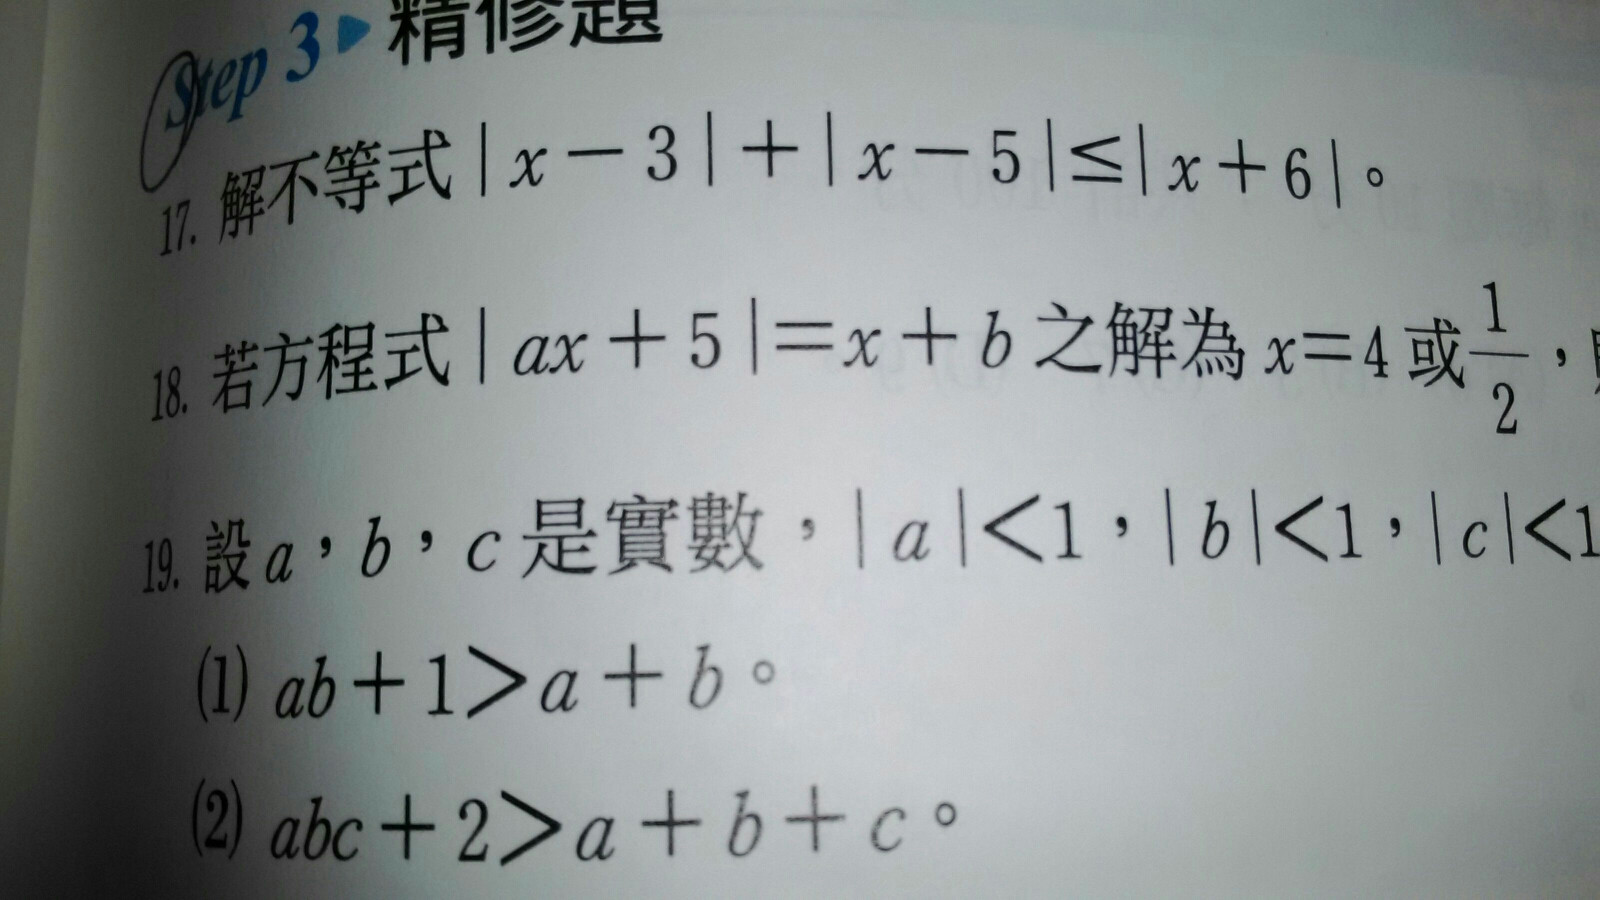 Step 3 ▸ 精修題
17. 解不等式|x－3|＋|x－5|≤|x＋6|。
18. 若方程式|ax＋5|＝x＋b之解為x＝4或1/2，
19. 設a，b，c是實數，|a|<1，|b|<1，|c|<1
(1) ab＋1>a＋b。
(2) abc＋2>a＋b＋c。